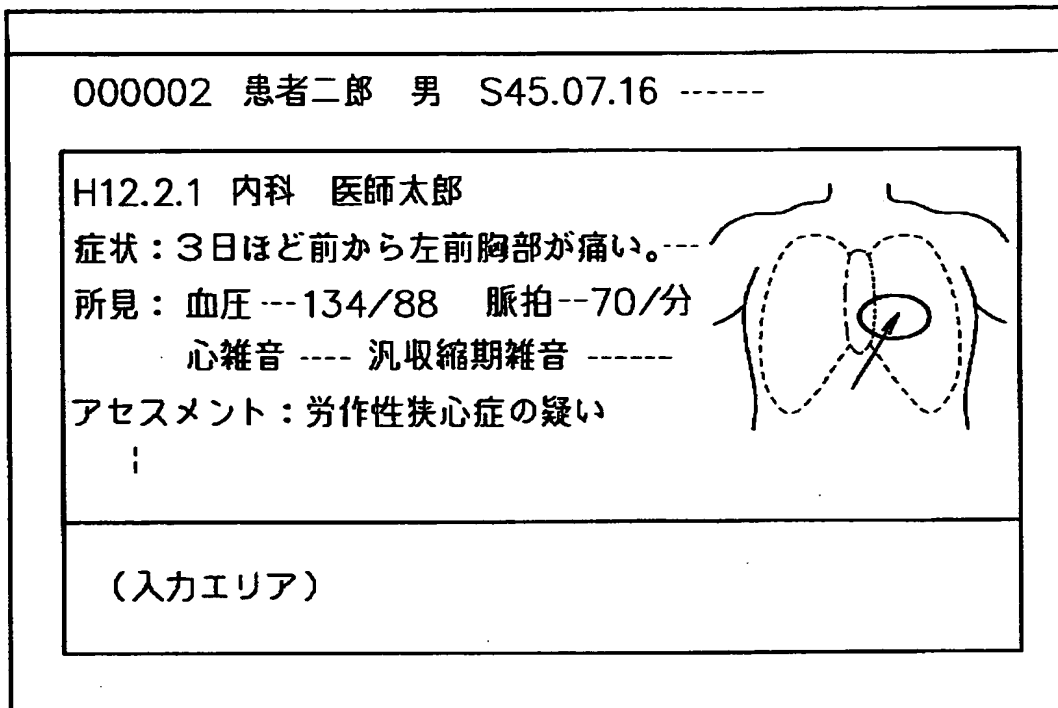 000002 患者二郎 男 S45.07.16 ------
H12.2.1 内科 医師太郎
症状：3日ほど前から左前胸部が痛い。---
所見： 血圧---134/88 脈拍--70/分
心雑音 ---- 汎収縮期雑音 ------
アセスメント：労作性狭心症の疑い
(入力エリア)